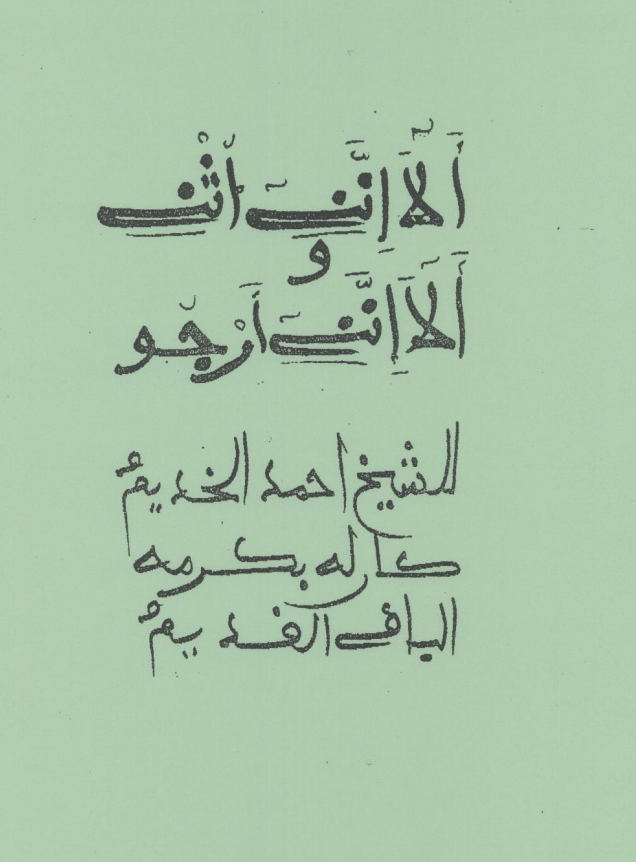 أَلَآ إِنَّنِي أُثْنِي
و
أَلَآ إِنَّنِي أَرْجُو
للشيخ احمد الخديم
كان له بكرمه
الباقي القديم